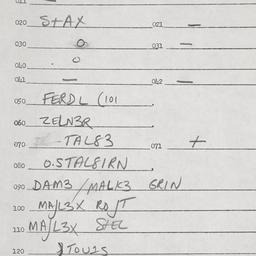 011
020 S+AX 021 —
030 o 031 —
040 . o
041 — 042 —
050 FERDL (101
060 ZELN3R
070 - TAL83 071 +
080 O.STAL81RN
090 DAM3 / MALK3 GRIN
100 MA/L3X RO/T
110 MA/L3X
120 STOU1S